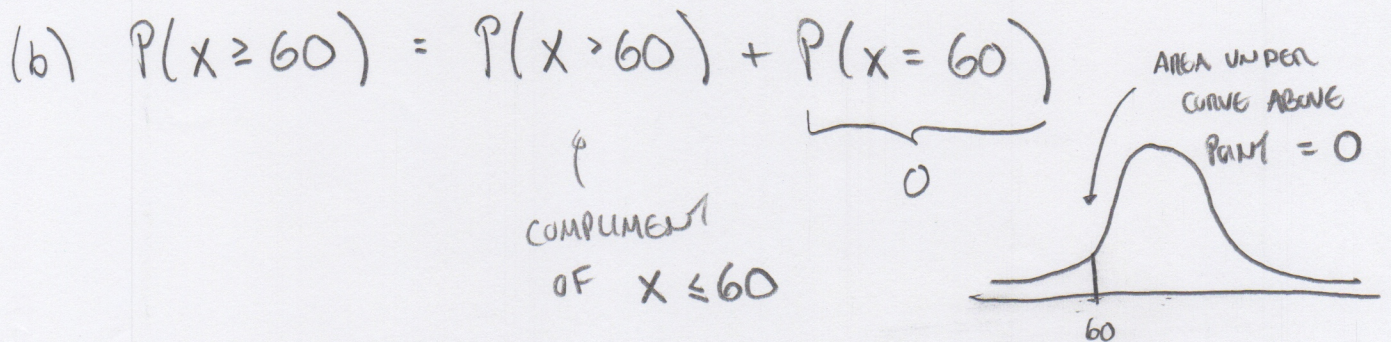 (b) P(X ≥ 60) = P(X > 60) + P(X = 60)
0
COMPLIMENT
OF X ≤ 60
AREA UNDER
CURVE ABOVE
POINT = 0
60